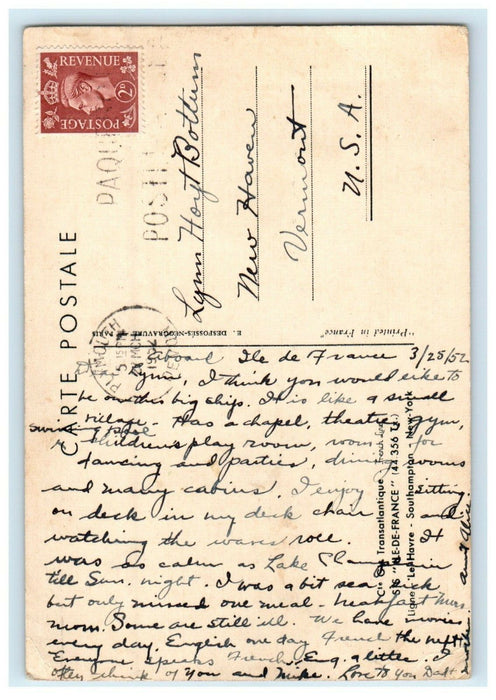 REVENUE
2D
POSTAGE
PAQU
POSTE
PLYMOUTH
MCH
CARTE POSTALE
Lynn Hoyt Bottum
New Haven
Vermont
U. S. A.
E. DESFOSSÉS-NÉOGRAVURE PARIS
"Printed in France"
Cie Gle Transatlantique French Line
S/S "ILE-DE-FRANCE" (44 356 Tx.)
Ligne : Le Havre - Southampton - New-York
Aboard Ile de France 3/25/52
Lynn, I think you would like to
be on this big ship. It is like a small
village. Has a chapel, theatre, gym,
swimming pool
children's play room, room for
dancing and parties, dining rooms
and many cabins. I enjoy sitting
on deck in my deck chair and
watching the waves roll. It
was as calm as Lake Champlain
till Sun. night. I was a bit sea sick
but only missed one meal - breakfast Mon.
morn. Some are still ill. We have movies
every day. English one day French the next.
Everyone speaks French, Eng. a little. I
often think of you and Mike. Love to you
aunt Alice